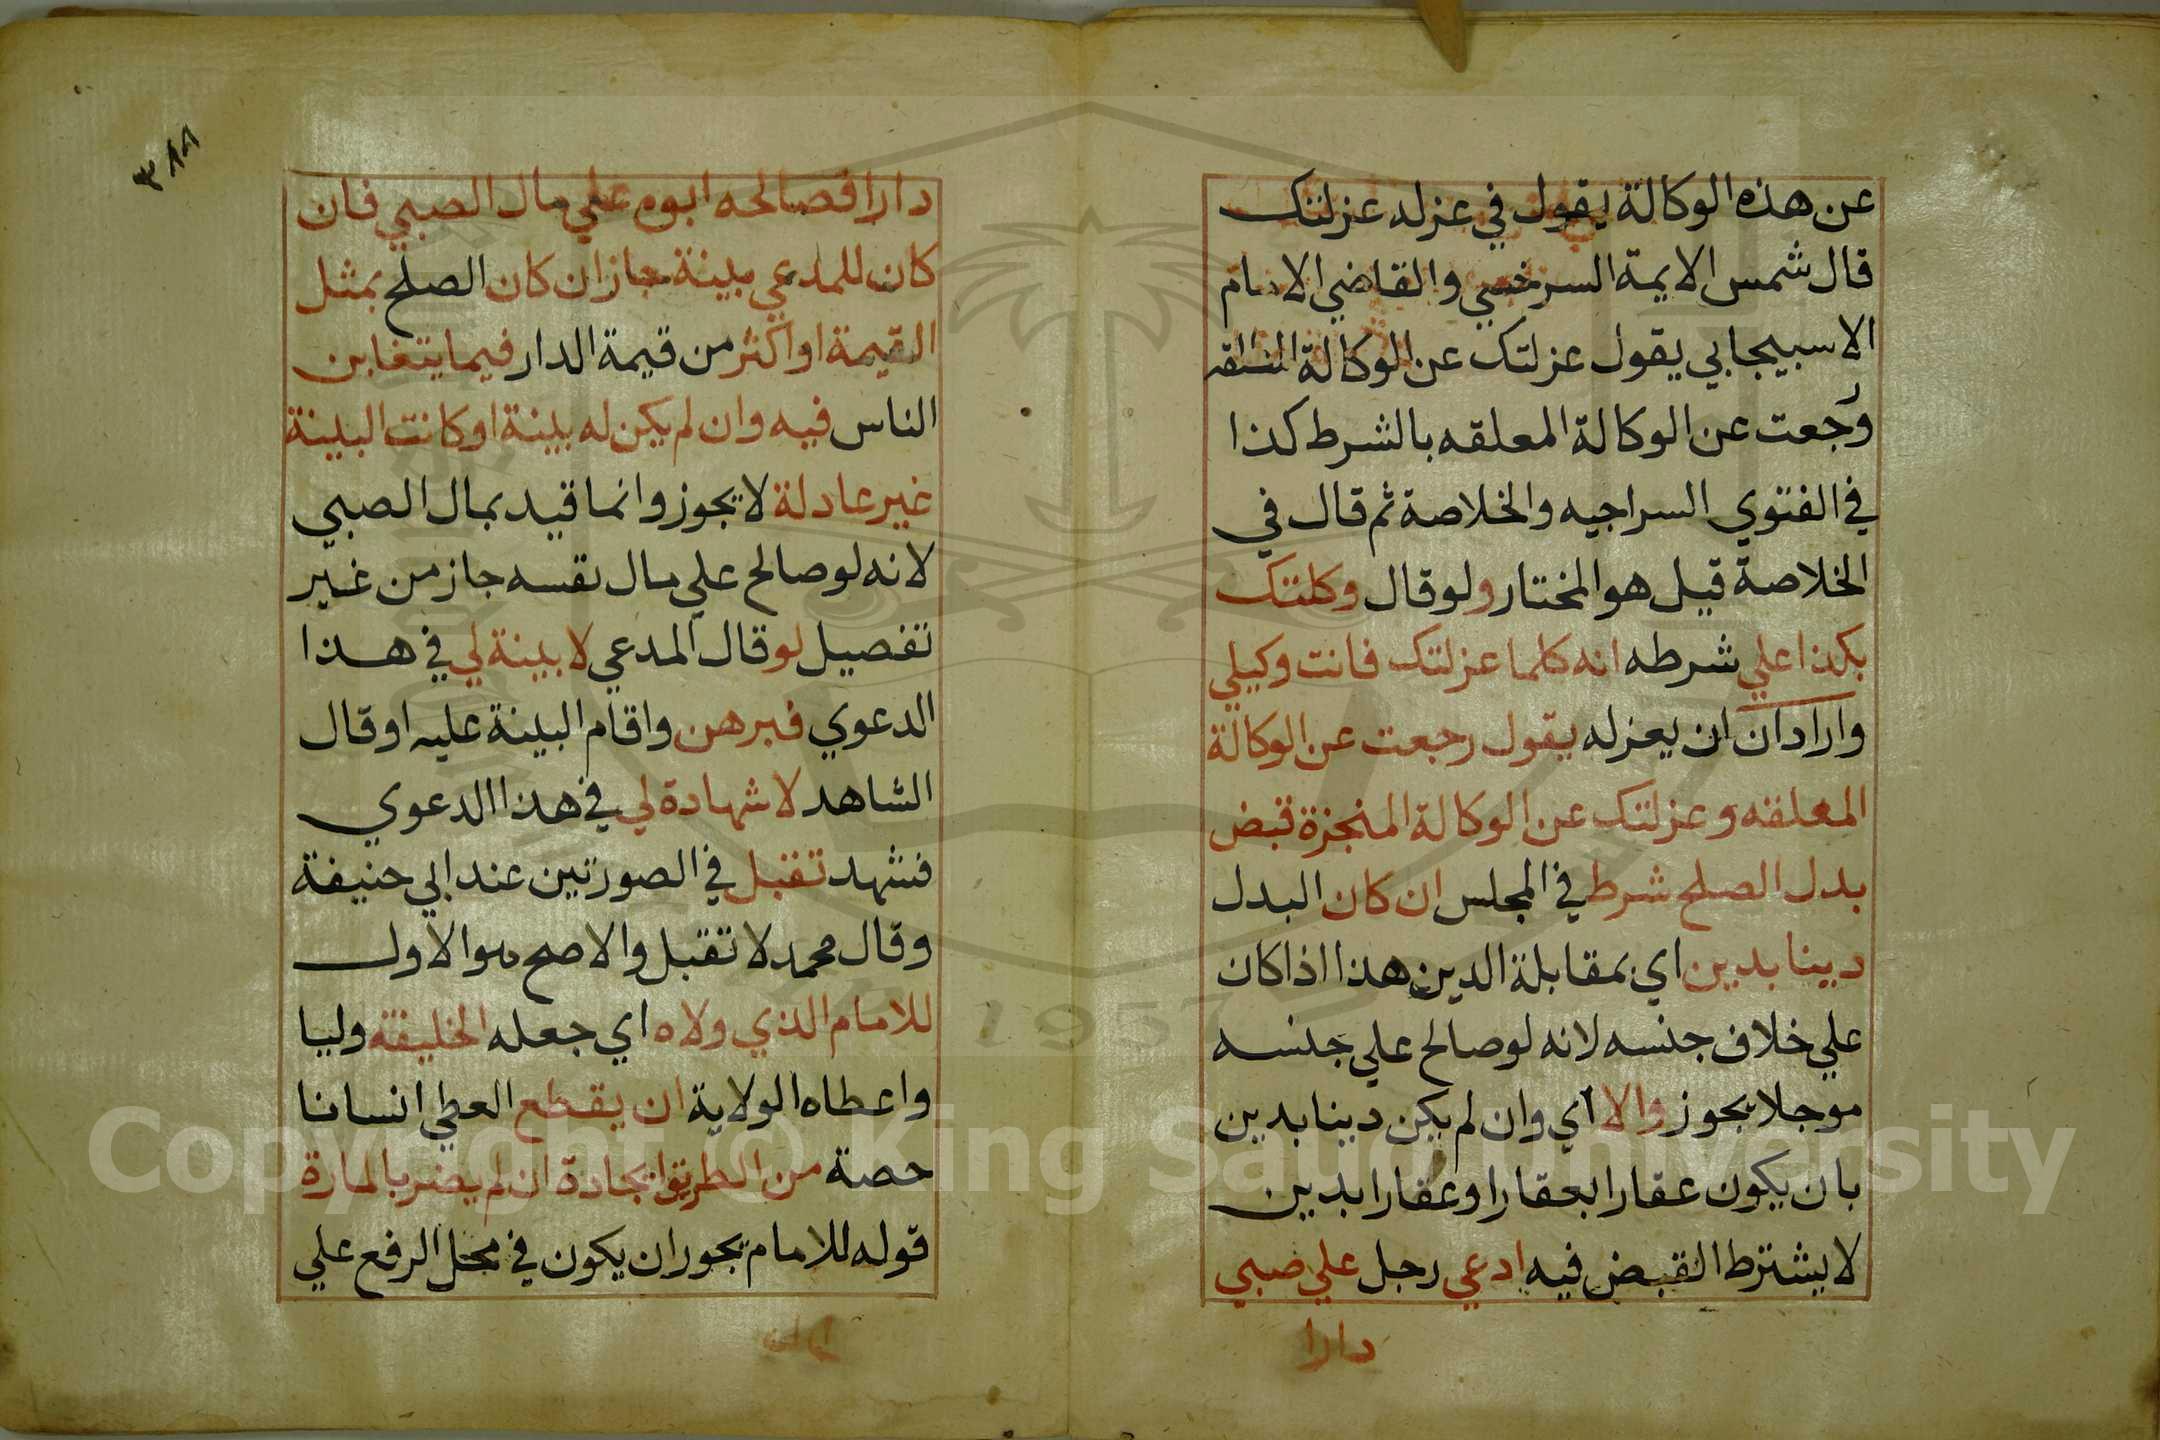 عن هذه الوكالة يقول في عزله عزلتك
قال شمس الايمة السرخسي والقاضي الامام
الاسبيجابي يقول عزلتك عن الوكالة
رجعت عن الوكالة المعلقه بالشرط كذا
في الفتوي السراجيه والخلاصة ثم قال في
الخلاصة قيل هو المختار ولو قال وكلتك
بكذا علي شرطه انه كلما عزلتك فانت وكيلي
وارادان ان يعزله يقول رجعت عن الوكالة
المعلقه وعزلتك عن الوكالة المنجزة قبض
بدل الصلح شرط في المجلس ان كان البدل
دينا بدين اي بمقابلة الدين هذا اذا كان
علي خلاف جنسه لانه لو صالح علي جنسه
موجلا يجوز والا اي وان لم يكن دينا بدين
بان يكون عقارا بعقارا وعقارا بدين
لا يشترط القبض فيه ادعي رجل علي صبي
دارا
٣٨٨
دارا فصالحه ابوه علي مال الصبي فان
كان للمدعي بينة جاز ان كان الصلح بمثل
القيمة او اكثر من قيمة الدار فيما يتغابن
الناس فيه وان لم يكن له بينة او كانت البينة
غير عادلة لا يجوز وانما قيد بمال الصبي
لانه لو صالح علي مال نفسه جاز من غير
تفصيل لو قال المدعي لا بينة لي في هذا
الدعوي فبرهن واقام البينة عليه او قال
الشاهد لا شهادة لي في هذا الدعوي
فشهد تقبل في الصورتين عند ابي حنيفة
وقال محمد لا تقبل والاصح هو الاول
للامام الذي ولاه اي جعله الخليفة وليا
واعطاه الولاية ان يقطع العطي انسانا
حصة من الطريق الجادة ان لم يضر بالمارة
قوله للامام يجوز ان يكون في محل الرفع علي
Copyright © King Saud University
1957